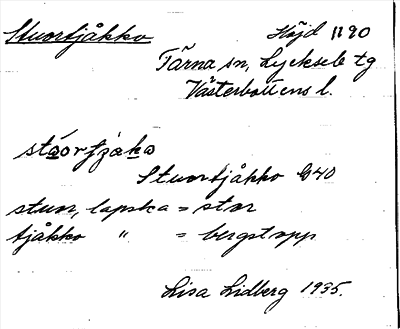 Stuortjåkko Höjd 1190
Tärna sn, Lycksele tg
Västerbottens l.
stōorfjäkɷ
Stuortjåkko G40
stuor, lapska = stor
tjåkko " = bergstopp
Lisa Lidberg 1935.